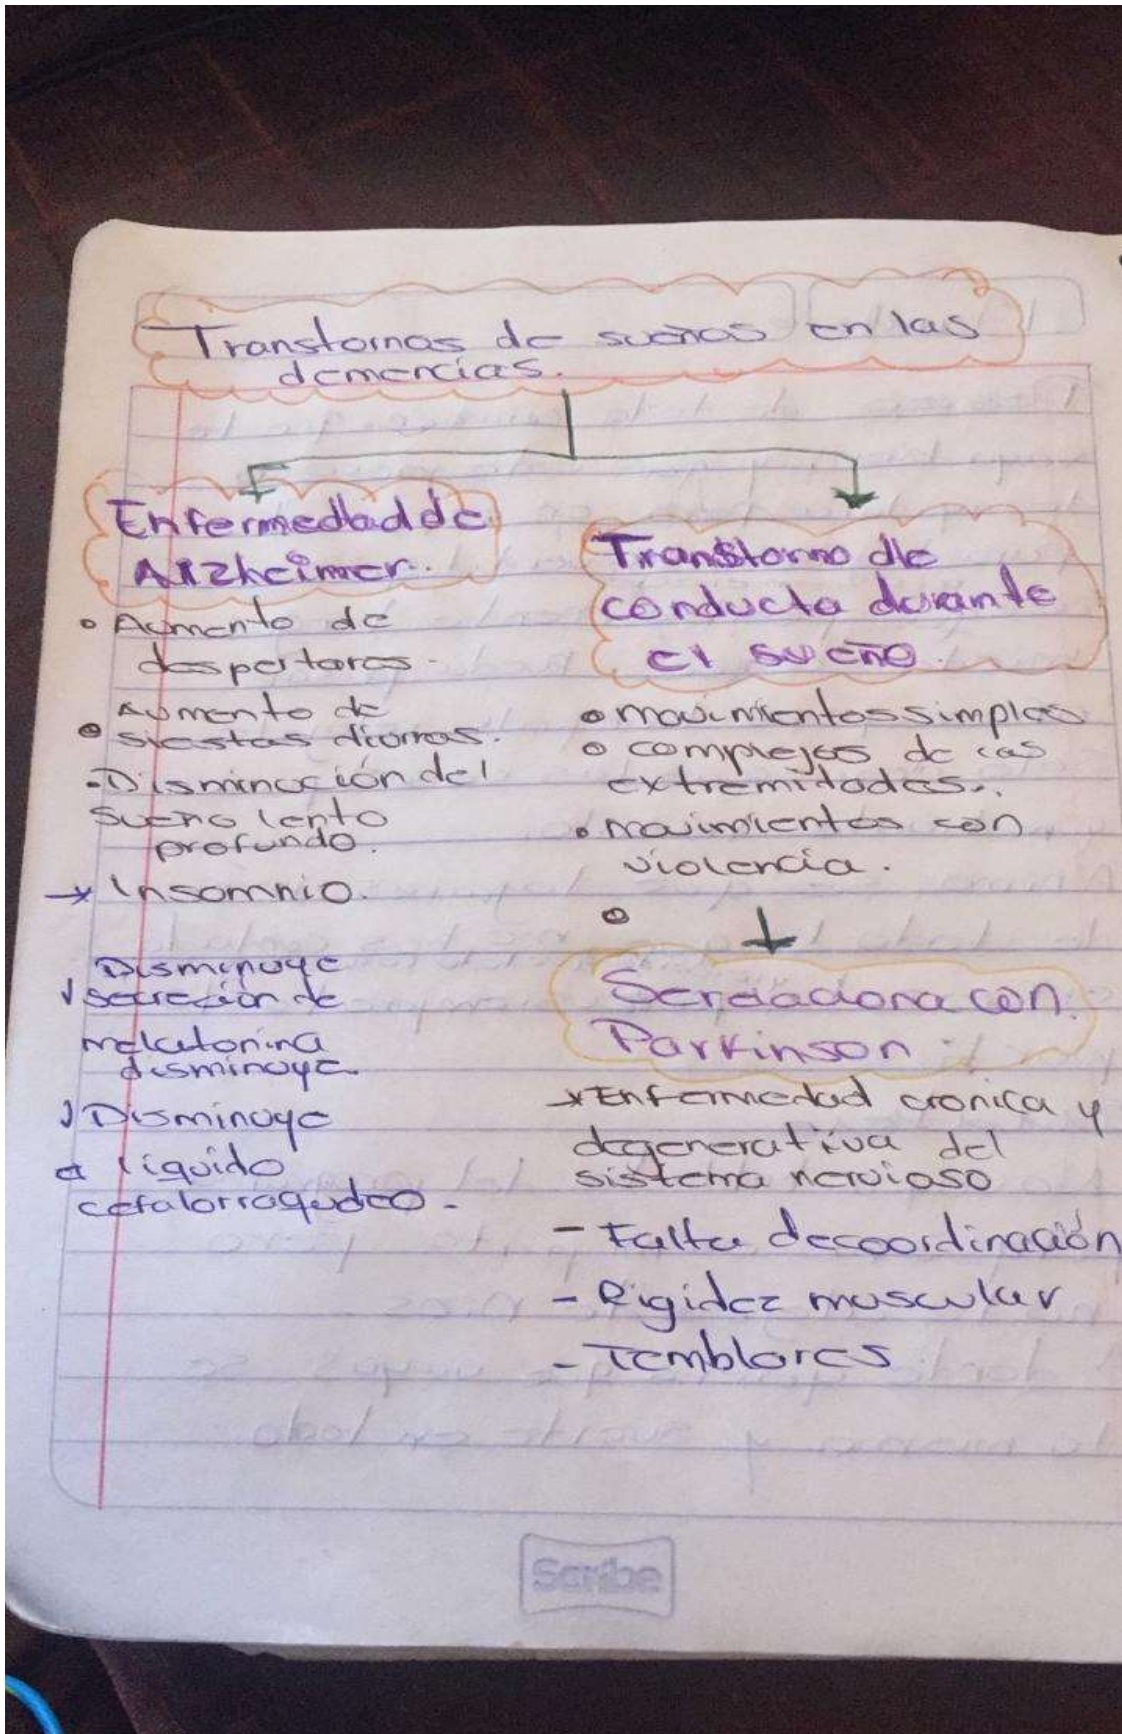 Transtornos de sueños en las
demencias.
Enfermedad de
Alzheimer.
• Aumento de
despertares.
Aumento de
• siestas diurnas.
- Disminución del
sueño lento
profundo.
→ Insomnio.
Disminuye
secreción de
melatonina
disminuye
Disminuye
líquido
cefalorraquideo.
Transtorno de
conducta durante
el sueño.
• movimientos simples
• complejos de las
extremitades..
• movimientos con
violencia.
•
Serelaciona con
Parkinson.
Enfermedad cronica y
degenerativa del
sistema nervioso
- Falta decoordinación
- Rigidez muscular
- Temblores
Scribe